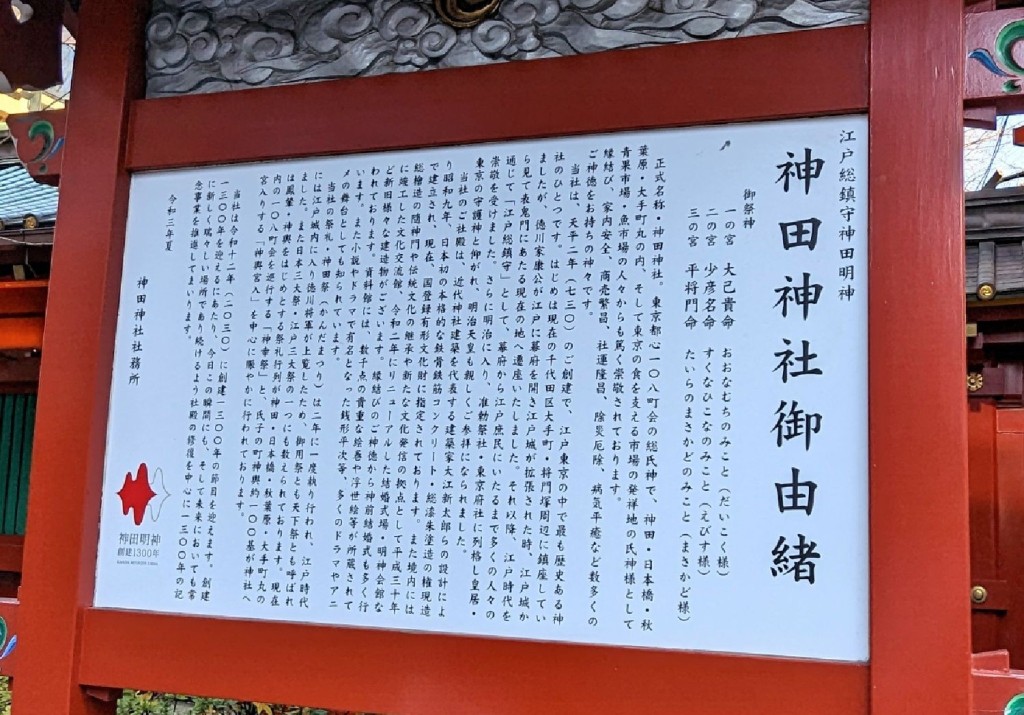 江戸総鎮守神田明神
神田神社御由緒
御祭神
一の宮　大己貴命　おおなむちのみこと（だいこく様）
二の宮　少彦名命　すくなひこなのみこと（えびす様）
三の宮　平将門命　たいらのまさかどのみこと（まさかど様）
正式名称・神田神社。東京都心一〇八町会の総氏神で、神田・日本橋・秋
葉原・大手町丸の内、そして東京の食を支える市場の発祥地の氏神様として
青果市場・魚市場の人々からも篤く崇敬されております。
縁結び、家内安全、商売繁昌、社運隆昌、除災厄除、病気平癒など数多くの
ご神徳をお持ちの神々です。
当社は、天平二年（七三〇）のご創建で、江戸東京の中で最も歴史ある神
社のひとつです。はじめは現在の千代田区大手町・将門塚周辺に鎮座してい
ましたが、徳川家康公が江戸に幕府を開き江戸城が拡張された時、江戸城か
ら見て表鬼門にあたる現在の地へ遷座いたしました。それ以降、江戸時代を
通じて「江戸総鎮守」として、幕府から江戸庶民にいたるまで多くの人々の
崇敬を受けました。さらに明治に入り、准勅祭社・東京府社に列格し皇居・
東京の守護神と仰がれ、明治天皇も親しくご参拝になられました。
当社のご社殿は、近代神社建築を代表する建築家大江新太郎らの設計によ
り昭和九年、日本初の本格的な鉄骨鉄筋コンクリート・総漆朱塗造の権現造
で建立され、現在、国登録有形文化財に指定されております。また境内には
総檜造の随神門や伝統文化の継承や新たな文化発信の拠点として平成三十年
に竣工した文化交流館、令和二年にリニューアルした結婚式場・明神会館な
ど新旧様々な建造物がございます。縁結びのご神徳から神前結婚式も多く行
われております。資料館には、数千点の貴重な絵巻や浮世絵等が所蔵されて
います。また小説やドラマで有名となった銭形平次等、多くのドラマやアニ
メの舞台としても知られています。
当社の祭礼・神田祭（かんだまつり）は二年に一度執り行われ、江戸時代
には江戸城内に入り徳川将軍が上覧したため、御用祭とも天下祭とも呼ばれ
ました。また日本三大祭・江戸三大祭の一つにも数えられております。現在
は鳳輦・神輿をはじめとする祭礼行列が神田・日本橋・秋葉原・大手町丸の
内の一〇八町会を巡行する「神幸祭」と、氏子の町神輿約一〇〇基が神社へ
宮入りする「神輿宮入」を中心に賑やかに行われております。
当社は令和十二年（二〇三〇）に創建一三〇〇年の節目を迎えます。創建
一三〇〇年を迎えるにあたり、今日この瞬間にも、そして未来においても常
に新しく瑞々しい場所であり続けるよう社殿の修復を中心に一三〇〇年の記
念事業を推進してまいります。
令和三年夏
神田神社社務所
神田明神
創建1300年